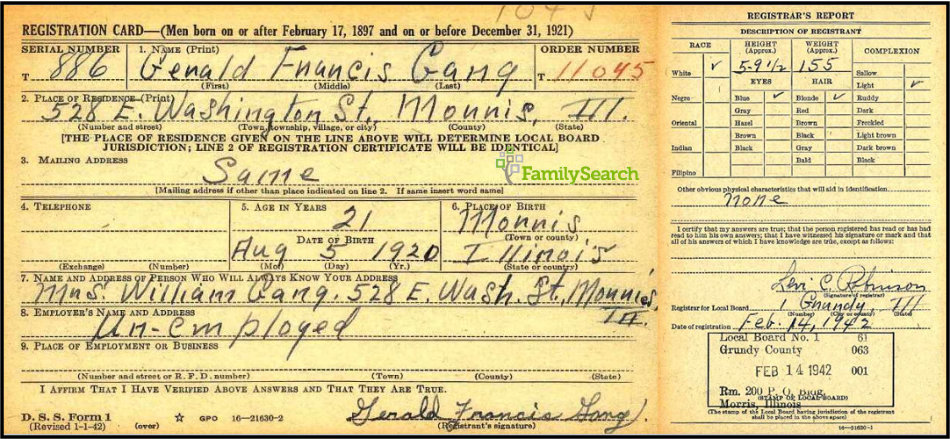 1045
REGISTRATION CARD—(Men born on or after February 17, 1897 and on or before December 31, 1921)
SERIAL NUMBER 1. NAME (Print) ORDER NUMBER
T 886 Gerald Francis Gang T 11045
(First) (Middle) (Last)
2. PLACE OF RESIDENCE (Print)
528 E. Washington St., Morris, Ill.
(Number and street) (Town, township, village, or city) (County) (State)
[THE PLACE OF RESIDENCE GIVEN ON THE LINE ABOVE WILL DETERMINE LOCAL BOARD
JURISDICTION; LINE 2 OF REGISTRATION CERTIFICATE WILL BE IDENTICAL]
3. MAILING ADDRESS
Same
FamilySearch
[Mailing address if other than place indicated on line 2. If same insert word same]
4. TELEPHONE 5. AGE IN YEARS 6. PLACE OF BIRTH
21 Morris
DATE OF BIRTH (Town or county)
Aug 5 1920 Illinois
(Exchange) (Number) (Mo.) (Day) (Yr.) (State or country)
7. NAME AND ADDRESS OF PERSON WHO WILL ALWAYS KNOW YOUR ADDRESS
Mrs. William Gang. 528 E. Wash. St. Morris,
Ill.
8. EMPLOYER'S NAME AND ADDRESS
Un-employed
9. PLACE OF EMPLOYMENT OR BUSINESS
(Number and street or R. F. D. number) (Town) (County) (State)
I AFFIRM THAT I HAVE VERIFIED ABOVE ANSWERS AND THAT THEY ARE TRUE.
D. S. S. Form 1
(Revised 1-1-42) (over) ☆ GPO 16—21630-2
Gerald Francis Gang
(Registrant's signature)
REGISTRAR'S REPORT
DESCRIPTION OF REGISTRANT
RACE HEIGHT (Approx.) WEIGHT (Approx.) COMPLEXION
White ✓ 5-9 1/2 155 Sallow
EYES HAIR Light ✓
Negro Blue ✓ Blonde ✓ Ruddy
Gray Red Dark
Oriental Hazel Brown Freckled
Brown Black Light brown
Indian Black Gray Dark brown
Bald Black
Filipino
Other obvious physical characteristics that will aid in identification
none
I certify that my answers are true; that the person registered has read or has had
read to him his own answers; that I have witnessed his signature or mark and that
all of his answers of which I have knowledge are true, except as follows:
Levi C. Robinson
(Signature of registrar)
Registrar for Local Board 1 Grundy, Ill
(Number) (City or county) (State)
Date of registration Feb. 14, 1942
Local Board No. 1 61
Grundy County 063
FEB 14 1942 001
Rm. 200 P. O. Bldg.
(STAMP OF LOCAL BOARD)
Morris, Illinois
(The stamp of the Local Board having jurisdiction of the registrant
shall be placed in the above space.)
16—21630-1